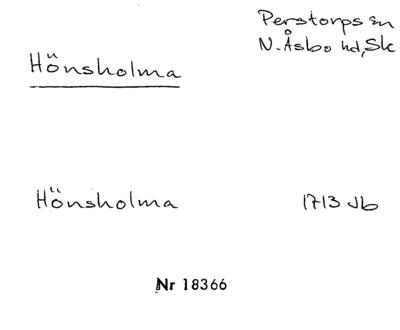 Perstorps sn
N. Åsbo hd, Sk
Hönsholma
Hönsholma 1713 Jb
Nr 18366